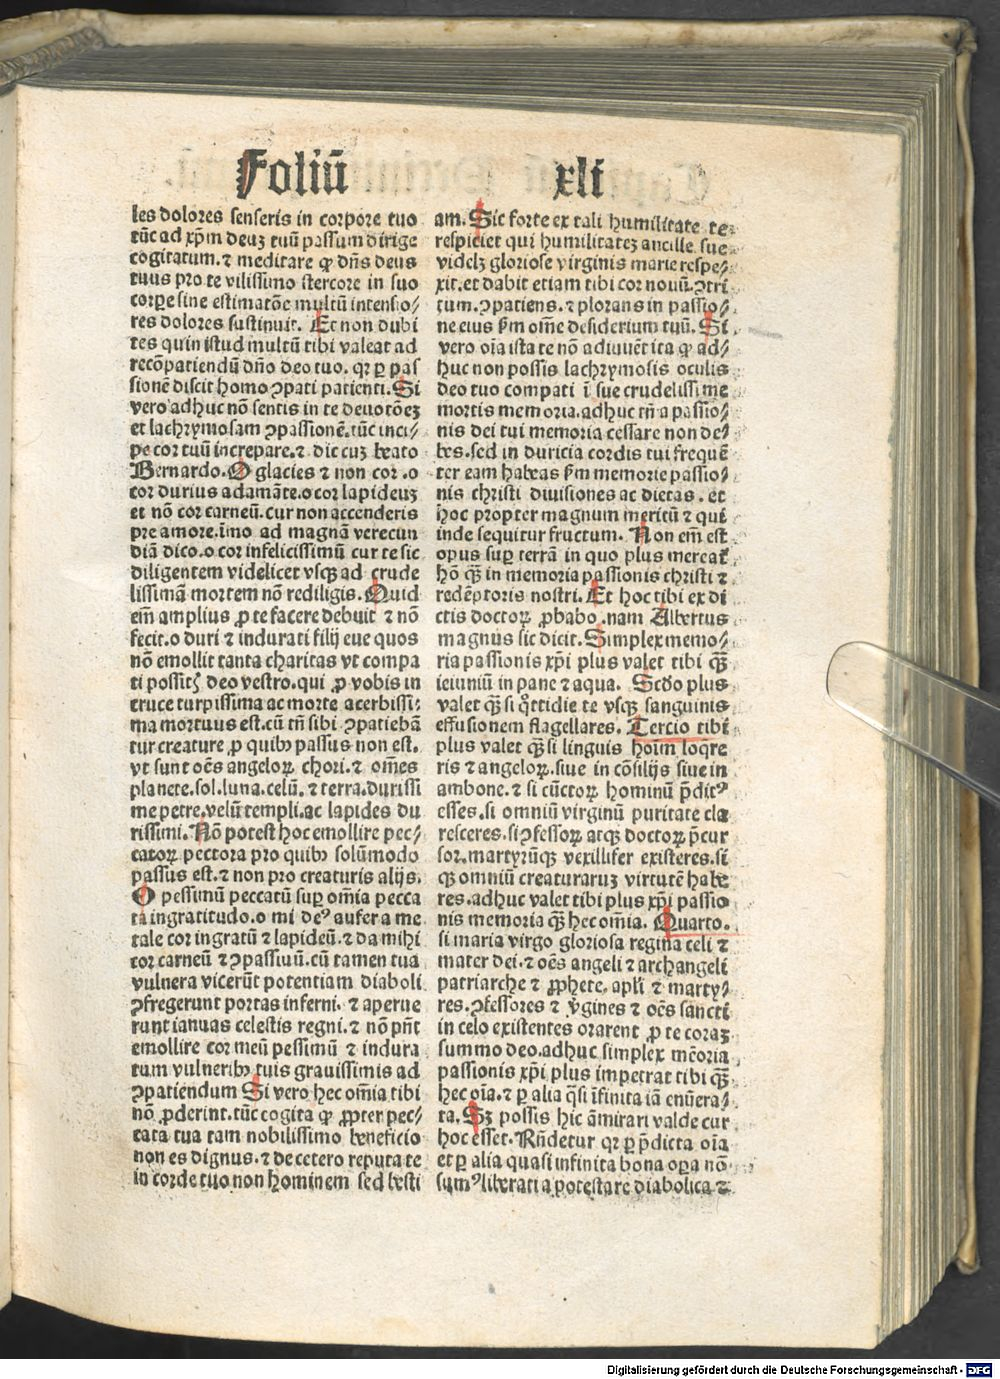 Foliū xli
les dolores senseris in corpore tuo
tūc ad xp̄m deuꝫ tuū passum dirige
cogitatum. ⁊ meditare ꝙ dn̄s deus
tuus pro te vilissimo stercore in suo
corꝑe sine estimatōe multū intensio⸗
res dolores sustinuit. Et non dubi
tes quin istud multū tibi valeat ad
recōpatiendū dn̄o deo tuo. qꝛ ꝑ pas
sionē discit homo ꝯpati patienti. Si
vero adhuc nō sentis in te deuotōeꝫ
et lachrymosam ꝯpassionē. tūc inci⸗
pe cor tuū increpare. ⁊ dic cuꝫ beato
Bernardo. O glacies ⁊ non cor. o
cor durius adamāte. o cor lapideuꝫ
et nō cor carneū. cur non accenderis
pre amore. īmo ad magnā verecun
diā dico. o cor infelicissimū cur te sic
diligentem videlicet vsqꝫ ad crude
lissimā mortem nō rediligis. Quid
em̄ amplius ꝓ te facere debuit ⁊ nō
fecit. o duri ⁊ indurati filij eue quos
nō emollit tanta charitas vt compa
ti possitꝭ deo vestro. qui ꝓ vobis in
cruce turpissima ac morte acerbissi⸗
ma mortuus est. cū tn̄ sibi ꝯpatiebā
tur creature ꝓ quibꝰ passus non est.
vt sunt oēs angeloꝝ chori. ⁊ om̄es
planete. sol. luna. celū. ⁊ terra. durissi
me petre. velū templi. ac lapides du
rissimi. Nō potest hoc emollire pec⸗
catoꝝ pectora pro quibꝰ solūmodo
passus est. ⁊ non pro creaturis alijs.
O pessimū peccatū suꝑ om̄ia pecca
ta ingratitudo. o mi deꝰ aufer a me
tale cor ingratū ⁊ lapideū. ⁊ da mihi
cor carneū ⁊ ꝯpassiuū. cū tamen tua
vulnera vicerūt potentiam diaboli
ꝯfregerunt portas inferni. ⁊ aperue
runt ianuas celestis regni. ⁊ nō pn̄t
emollire cor meū pessimū ⁊ indura
tum vulneribꝰ tuis grauissimis ad
ꝯpatiendum Si vero hec om̄ia tibi
nō ꝓderint. tūc cogita ꝙ ꝓpter pec⸗
cata tua tam nobilissimo beneficio
non es dignus. ⁊ de cetero reputa te
in corde tuo non hominem sed besti
am. Sic forte ex tali humilitate te
respiciet qui humilitateꝫ ancille sue
videlꝫ gloriose virginis marie respe⸗
xit. et dabit etiam tibi cor nouū. ꝯtri
tum. ꝯpatiens. ⁊ plorans in passio⸗
ne eius ẜm om̄e desiderium tuū. Si
vero oīa ista te nō adiuuēt ita ꝙ ad⸗
huc non possis lachrymosis oculis
deo tuo compati ī sue crudelissime
mortis memoria. adhuc tn̄ a passio⸗
nis dei tui memoria cessare non de⸗
bes. sed in duricia cordis tui frequē
ter eam habeas ẜm memorie passio⸗
nis christi diuisiones ac dietas. et
hoc propter magnum meritū ⁊ qui
inde sequitur fructum. Non em̄ est
opus suꝑ terrā in quo plus mereaꞇ̄
hō qꝫ̄ in memoria passionis christi ⁊
redēptoris nostri. Et hoc tibi ex di
ctis doctoꝝ ꝓbabo. nam Albertus
magnus sic dicit. Simplex memo⸗
ria passionis xp̄i plus valet tibi qꝫ̄
ieiuniū in pane ⁊ aqua. Scd̄o plus
valet qꝫ̄ si qͦttidie te vsqꝫ sanguinis
effusionem flagellares. Tercio tibi
plus valet qꝫ̄ si linguis hoīm loqre
ris ⁊ angeloꝝ. siue in cōsilijs siue in
ambone. ⁊ si cūctoꝝ hominū p̄ditꝰ
esses. si omniū virginū puritate cla
resceres. si ꝯfessoꝝ atqꝫ doctoꝝ p̄cur
sor. martyrūqꝫ vexillifer existeres. si
qꝫ omniū creaturaruꝫ virtutē habe
res. adhuc valet tibi plus xp̄i passio
nis memoria qꝫ̄ hec om̄ia. Quarto.
si maria virgo gloriosa regina celi ⁊
mater dei. ⁊ oēs angeli ⁊ archangeli
patriarche ⁊ ꝓphete. apl̄i ⁊ marty⸗
res. ꝯfessores ⁊ v̄gines ⁊ oēs sancti
in celo existentes orarent ꝓ te coraꝫ
summo deo. adhuc simplex mēoria
passionis xp̄i plus impetrat tibi qꝫ̄
hec oīa. ⁊ ꝑ alia qͣsi īfinita iā enūera⸗
ta. Sꝫ possis hic āmirari valde cur
hoc esset. Rn̄detur qꝛ ꝑ p̄dicta oīa
et ꝑ alia quasi infinita bona oꝑa nō
sumꝰ liberati a potestate diabolica ⁊
Digitalisierung gefördert durch die Deutsche Forschungsgemeinschaft - DFG